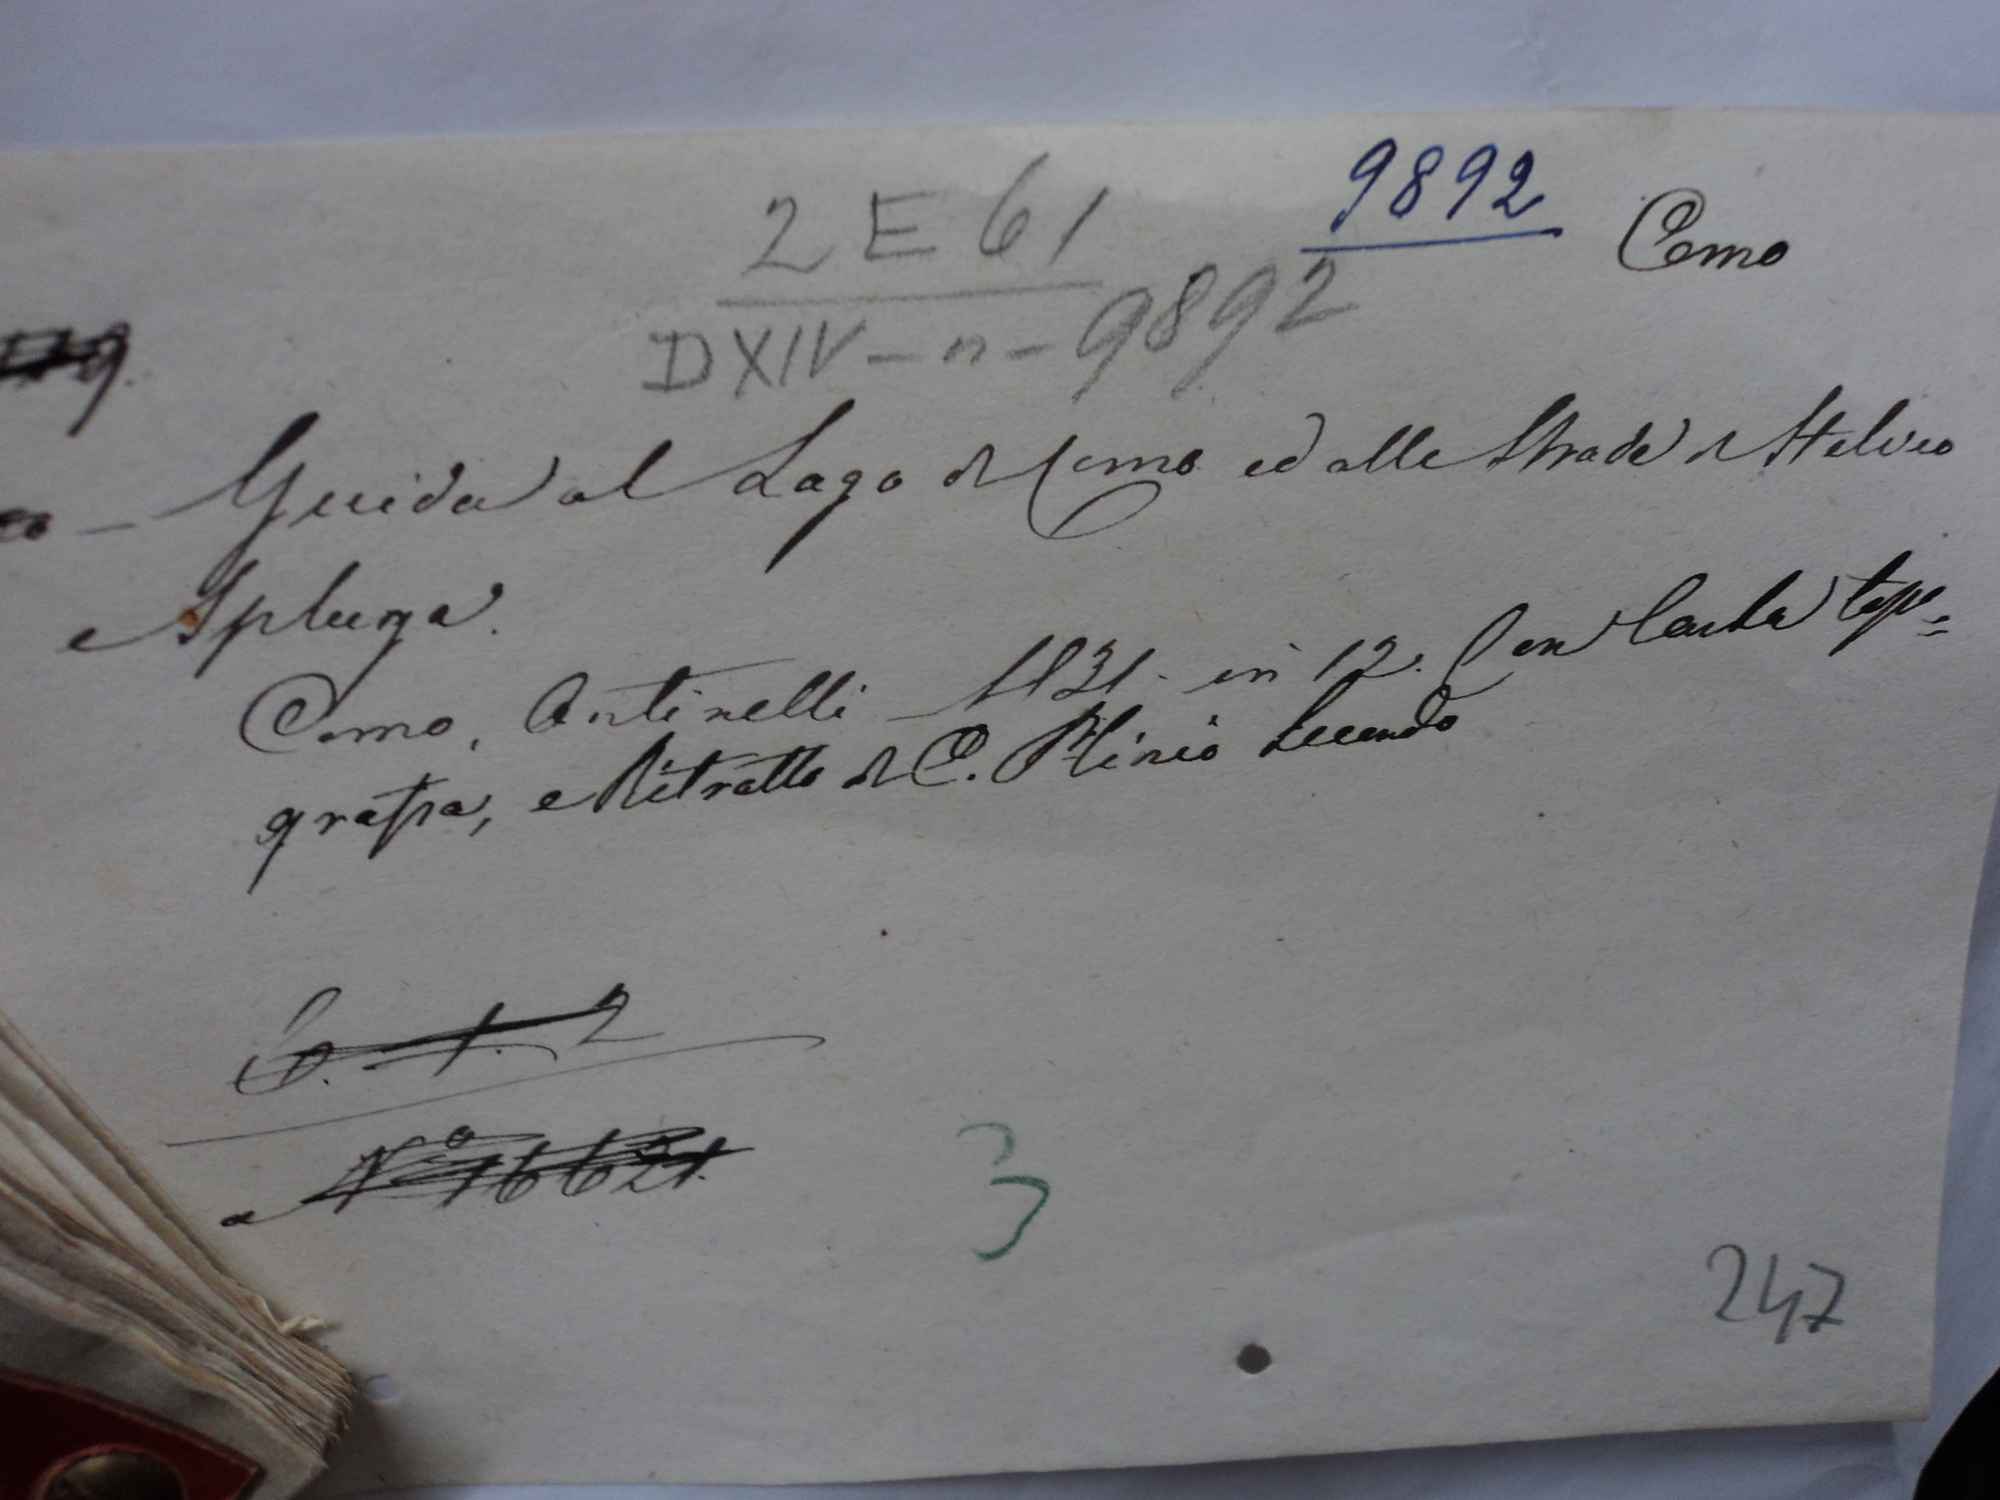 9892
2 E 61
Como
DXIV - n - 9892
Guida al Lago di Como ed alle Strade di Stelvio
e Spluga.
Como, Ostinelli 1831. in 12. Con Carta topo=
grafica, e Ritratto di C. Plinio Secondo
3
247